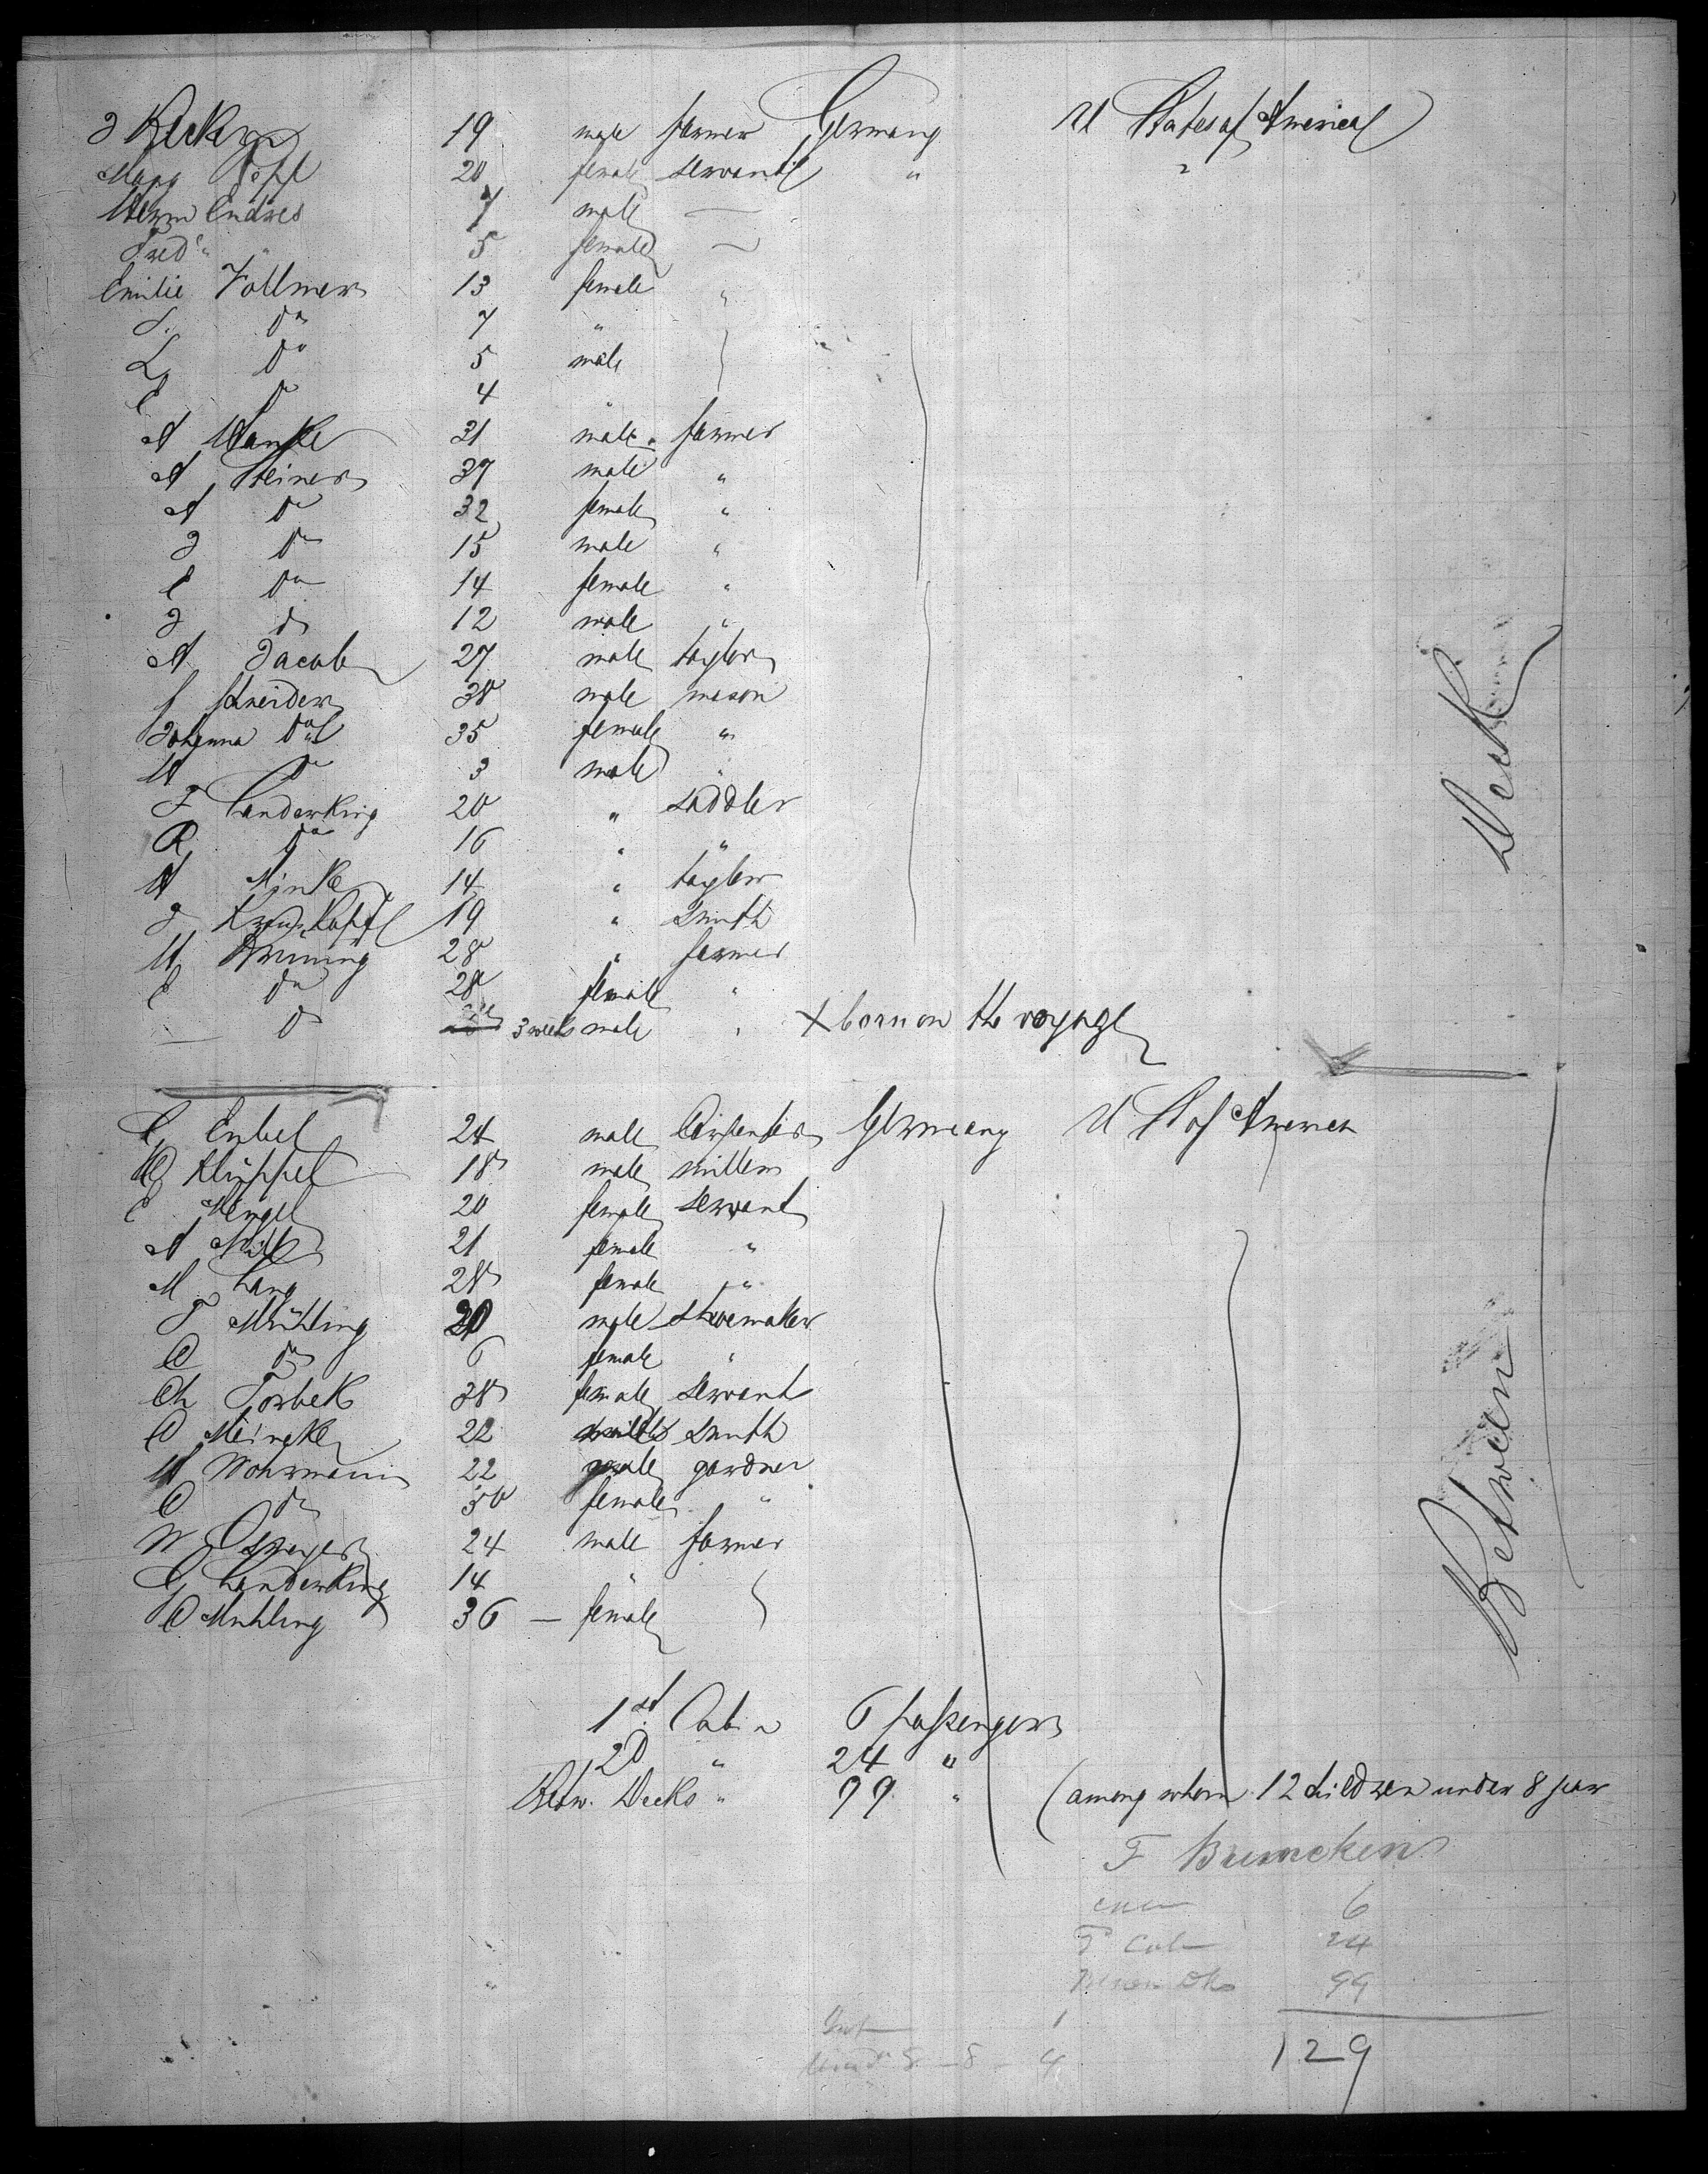 J Becker 19 male farmer Germany U States of America
Marg 20 female servant " "
Herm Endres 7 male —
Fred " 5 female —
Emilie Vollmer 13 female "
S. do 7 "
L do 5 male
E do 4 "
A Hanke 31 male farmer
A Steiner 37 male "
A do 32 female "
J do 15 male "
E do 14 female "
J do 12 male "
A Jacob 27 male taylor
J Schneider 38 male mason
Johanna do 35 female "
H do 3 male "
F Landwking 20 " saddler
R do 16 " "
H Minke 14 " taylor
J 19 " smith
H Bruning 28 " farmer
E do 28 female "
do 3 weeks male " × born on the voyage
C Enbel 24 male Carpenter Germany U St of America
H Klüppel 18 male miller
E Mengel 20 female servant
A 21 female "
M Lang 28 female "
F Mühling 20 male shoemaker
C do 6 female "
Ch Torbek 38 female servant
C Meineke 22 smith
H Wohrmann 22 male gardner
C do 50 female "
W 24 male farmer
G Landwking 14 "
C Muhling 36 — female
Between Deck
1st Cabin 6 passengers
2D " 24 "
Betw. Decks " 99 " (among whom 12 children under 8 year
F Bremcken
6
Cab 24
99
1
4
129